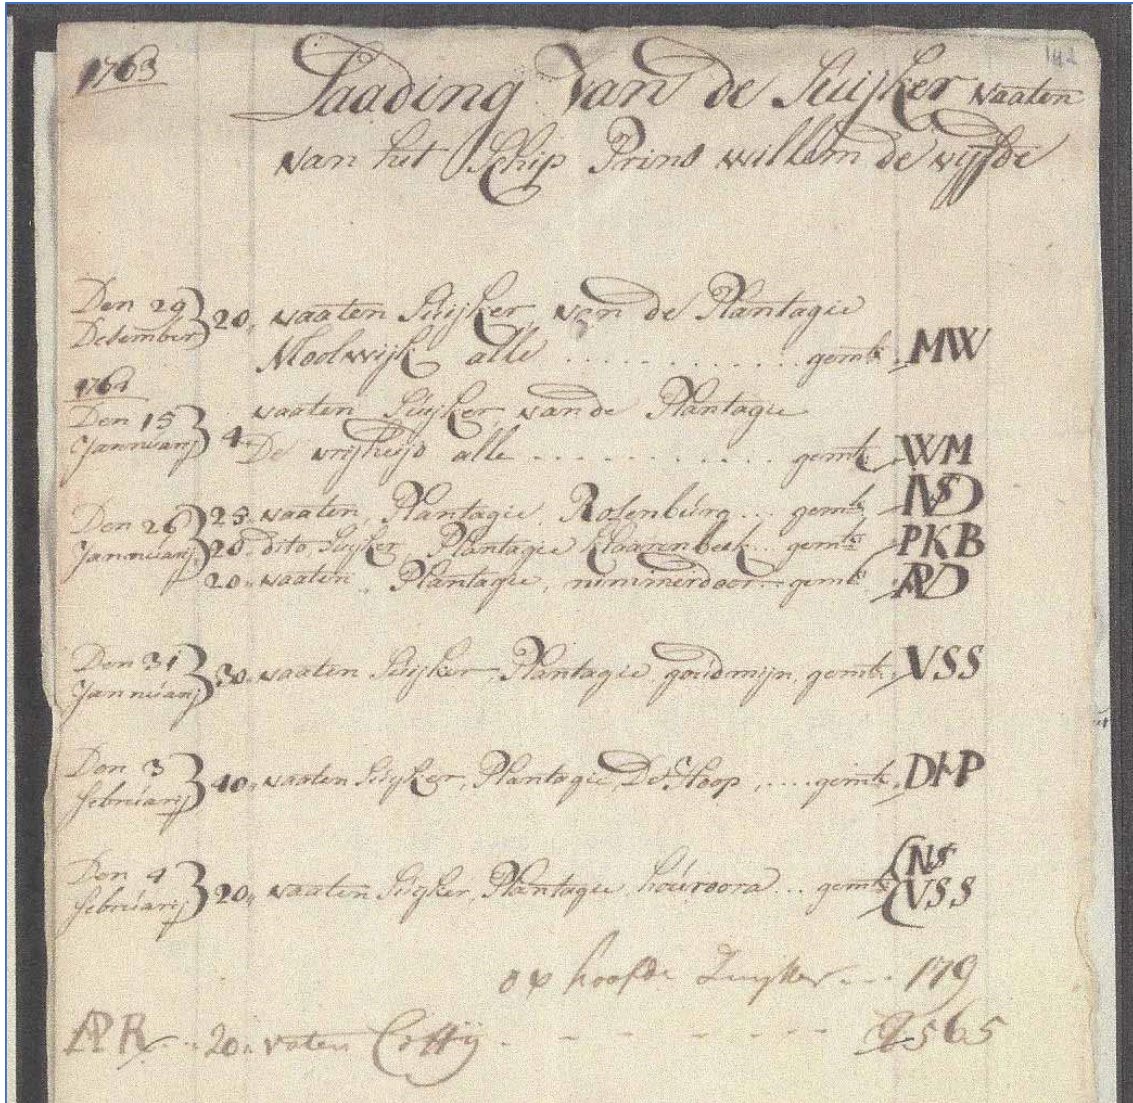 142
1763
Laading van de Suijker vaaten
van het Schip Prins willem de vyfde
Den 29 December 20 vaaten Suijker, van de Plantagie
Moolwijk alle ............ gemk MW
1764
Den 15 Jannúarij 4 vaaten Suijker, van de Plantagie
De vrijheijd alle ............ gemk WM
Den 26 Jannúarij 25 vaaten, Plantagie Rosenbúrg ... gemk
20 dito Suijker, Plantagie Klaarenbeek ... gemk PKB
20 vaaten, Plantagie, nimmerdoor gemk
Den 31 Jannúarij 30 vaaten Suijker, Plantagie goúdmijn, gemk VSS
Den 3 februarij 40 vaaten Suijker, Plantagie, De Hoop, .... gemk DHP
Den 4 februarij 20 vaaten Suijker, Plantagie, hoúroora ... gemk NS
VSS
179
20 vaten Coffij - - - - - - -